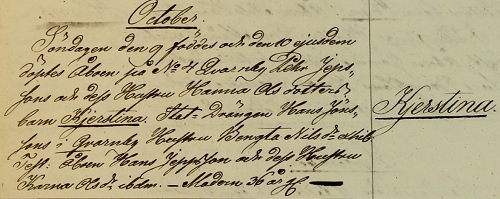 October.
Söndagen den 9 föddes och den 10 ejusdem
döptes Åboen på No 4 Qvarnby Pehr Jeps-
sons och dess Hustru Hanna Ols dotters
barn Kjerstina. Stat-Drängen Hans Jöns-
sons i Qvarnby Hustru Bengta Nils dr
Test. Åboen Hans Jeppsson och dess Hustru
Karna Ols dr ibdm. – Modern 36 år gl. –
Kjerstina.